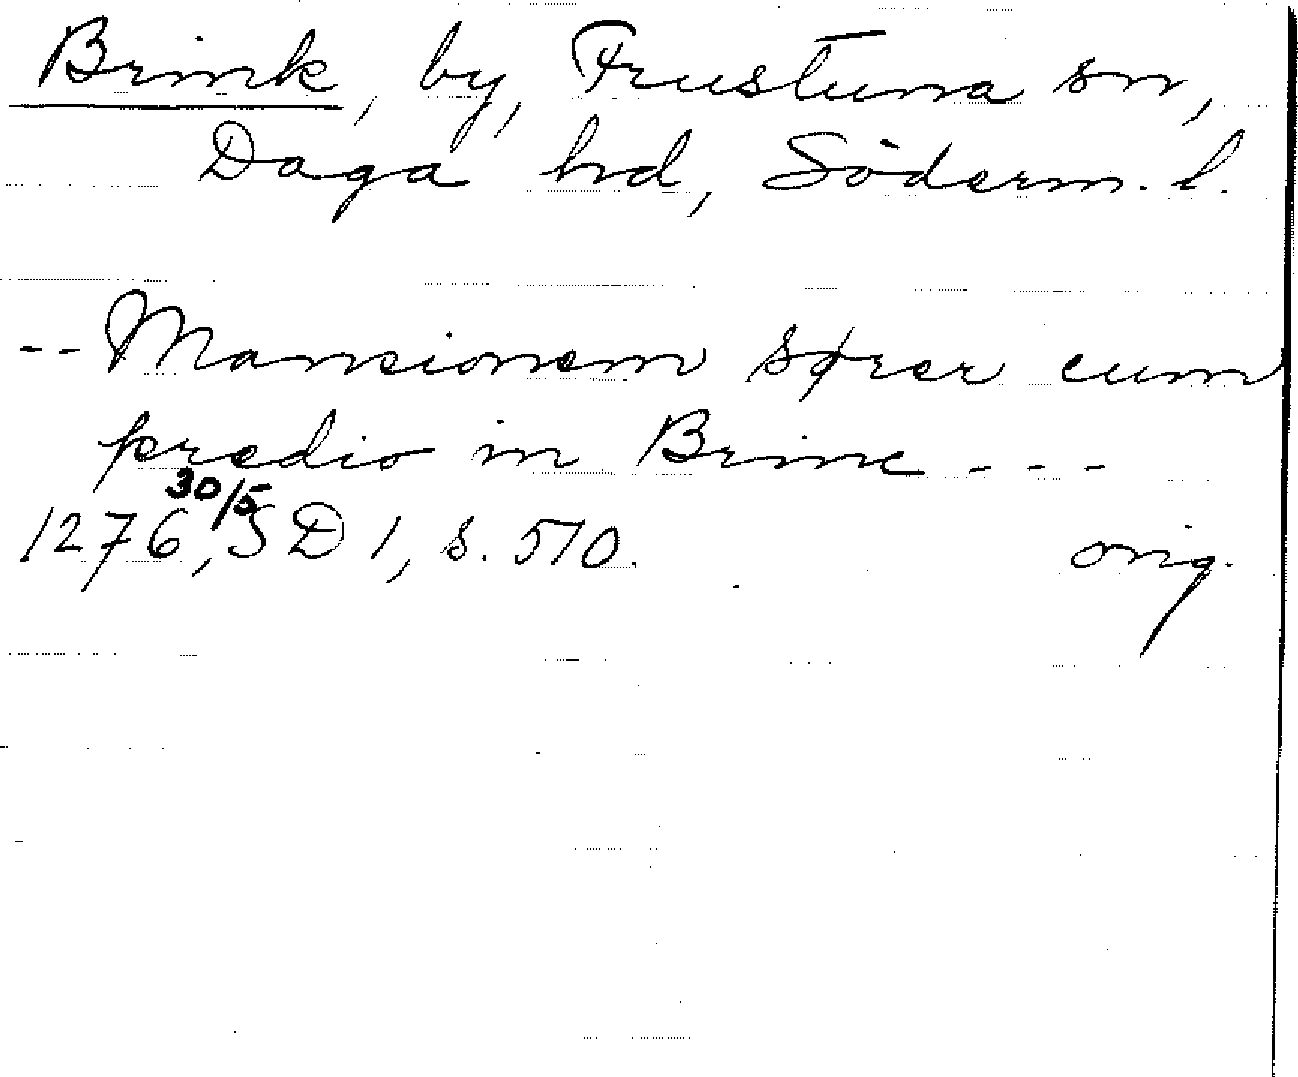 Brink, by, Frustuna sn,
Daga hd, Söderm. l.
-- Mansionem sører cum
predio in Brinc - - -
1276 30/5, SD 1, s. 510. orig.